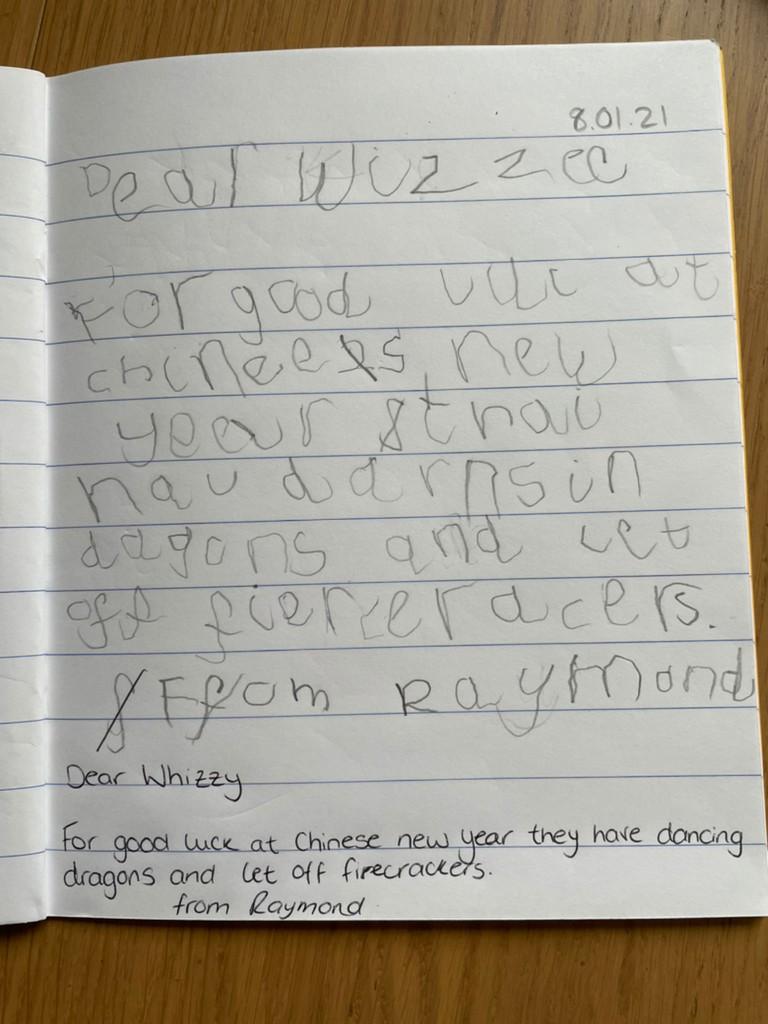 8.01.21
Dear Wizzee
For good luc at
chineees new
year thai
hav darnsin
dagons and let
off fiercracers.
From Raymond
Dear Whizzy
For good luck at Chinese new year they have dancing
dragons and let off firecrackers.
from Raymond